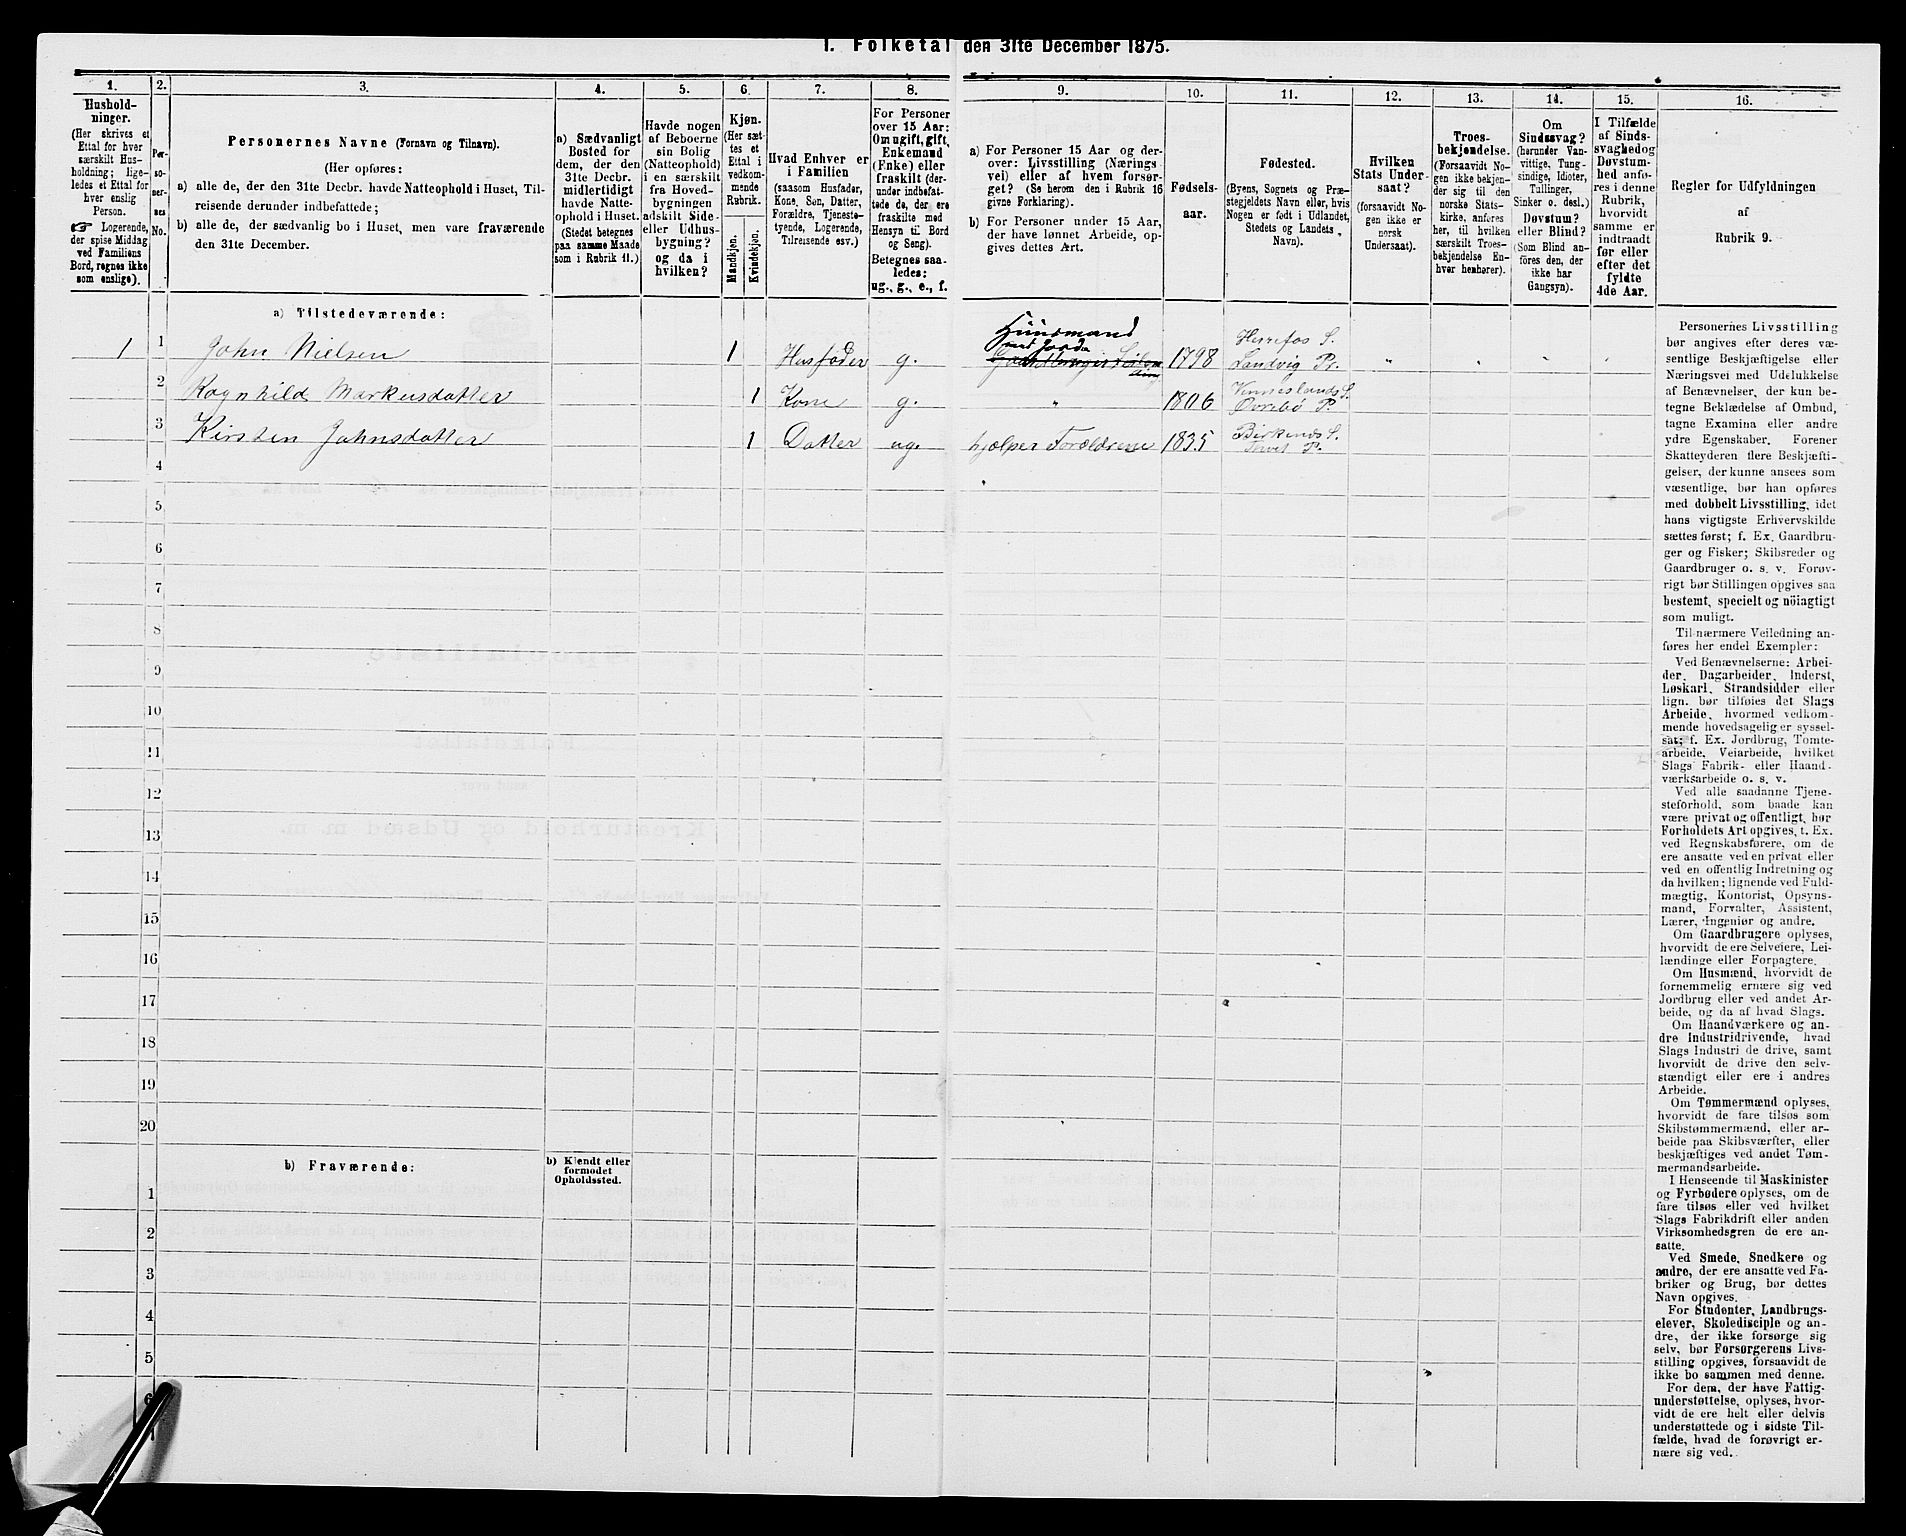 I. Folketal den 31te December 1875.
1. 2. 3. 4. 5. 6. 7. 8. 9. 10. 11. 12. 13. 14. 15. 16.
Hushold-
ninger.
(Her skrives et
Ettal for hver
særskilt Hus-
holdning; lige-
ledes et Ettal for
hver enslig
Person.
☞ Logerende,
der spise Middag
ved Familiens
Bord, regnes ikke
som enslige).
Per-
so-
ner-
nes
No.
Personernes Navne (Fornavn og Tilnavn).
(Her opføres:
a) alle de, der den 31te Decbr. havde Natteophold i Huset, Til-
reisende derunder indbefattede;
b) alle de, der sædvanlig bo i Huset, men vare fraværende
den 31te December.
a) Sædvanligt
Bosted for
dem, der den
31te Decbr.
midlertidigt
havde Natte-
ophold i Huset.
(Stedet betegnes
paa samme Maade
som i Rubrik 11.)
Havde nogen
af Beboerne
sin Bolig
(Natteophold)
i en særskilt
fra Hoved-
bygningen
adskilt Side-
eller Udhus-
bygning?
og da i
hvilken?
Kjøn.
(Her sæt-
tes et
Ettal i
vedkom-
mende
Rubrik.
Mandkjøn.
Kvindekjøn.
Hvad Enhver er
i Familien
(saasom Husfader,
Kone, Søn, Datter,
Forældre, Tjeneste-
tyende, Logerende,
Tilreisende osv.)
For Personer
over 15 Aar:
Om ugift, gift,
Enkemand
(Enke) eller
fraskilt (der-
under indbefat-
tede de, der ere
fraskilte med
Hensyn til Bord
og Seng).
Betegnes saa-
ledes:
ug., g., e., f.
a) For Personer 15 Aar og der-
over: Livsstilling (Nærings
vei) eller af hvem forsør-
get? (Se herom den i Rubrik 16
givne Forklaring).
b) For Personer under 15 Aar,
der have lønnet Arbeide, op-
gives dettes Art.
Fødsels-
aar.
Fødested.
(Byens, Sognets og Præ-
stegjeldets Navn eller, hvis
Nogen er født i Udlandet,
Stedets og Landets
Navn).
Hvilken
Stats Under-
saat?
(forsaavidt No-
gen ikke er
norsk
Undersaat).
Troes-
bekjendelse.
(Forsaavidt No-
gen ikke bekjen-
der sig til den
norske Stats-
kirke, anføres
her, til hvilken
særskilt Troes-
bekjendelse En-
hver henhører).
Om
Sindssvag?
(herunder Van-
vittige, Tung-
sindige, Idioter,
Tullinger,
Sinker o. desl.)
Døvstum?
eller Blind?
(Som Blind an-
føres den, der
ikke har
Gangsyn).
I Tilfælde
af Sinds-
svaghed og
Døvstum-
hed anfø-
res i denne
Rubrik,
hvorvidt
samme er
indtraadt
før eller
efter det
fyldte
4de Aar.
Regler for Udfyldningen
af
Rubrik 9.
a) Tilstedeværende:
1 1 John Nielsen 1 Husfader g. Huusmand med Jord 1798 Herrefos S. Landvig Pr. " " " "
2 Ragnhild Markusdatter 1 Kone g. " 1806 Vennesland S. Øvrebø P.
3 Kirsten Johnsdatter 1 Datter ug. hjælper Forældrene 1835 Birkenæs S. Tveit P.
4
5
6
7
8
9
10
11
12
13
14
15
16
17
18
19
20
b) Fraværende:
b) Kjendt eller
formodet
Opholdssted.
1
2
3
4
5
6
Personernes Livsstilling
bør angives efter deres væ-
sentlige Beskjæftigelse eller
Næringsvei med Udelukkelse
af Benævnelser, der kun be-
tegne Beklædelse af Ombud,
tagne Examina eller andre
ydre Egenskaber. Forener
Skatteyderen flere Beskjæfti-
gelser, der kunne ansees som
væsentlige, bør han opføres
med dobbelt Livsstilling, idet
hans vigtigste Erhvervskilde
sættes først; f. Ex. Gaardbru-
ger og Fisker; Skibsreder og
Gaardbruger o. s. v. Forøv-
rigt bør Stillingen opgives saa
bestemt, specielt og nöiagtigt
som muligt.
Til nærmere Veiledning an-
føres her endel Exempler:
Ved Benævnelserne: Arbei-
der, Dagarbeider, Inderst,
Løskarl, Strandsidder eller
lign. bør tilføies det Slags
Arbeide, hvormed vedkom-
mende hovedsagelig er syssel-
sat; f. Ex. Jordbrug, Tomte-
arbeide, Veiarbeide, hvilket
Slags Fabrik- eller Haand-
værksarbeide o. s. v.
Ved alle saadanne Tjene-
steforhold, som baade kan
være privat og offentligt, bør
Forholdets Art opgives, t. Ex.
ved Regnskabsførere, om de
ere ansatte ved en privat eller
ved en offentlig Indretning og
da hvilken; lignende ved Fuld-
mægtig, Kontorist, Opsyns-
mand, Forvalter, Assistent,
Lærer, Ingeniør og andre.
Om Gaardbrugere oplyses,
hvorvidt de ere Selveiere, Lei-
lændinge eller Forpagtere.
Om Husmænd, hvorvidt de
fornemmelig ernære sig ved
Jordbrug eller ved andet Ar-
beide, og da af hvad Slags.
Om Haandværkere og an-
dre Industridrivende, hvad
Slags Industri de drive, samt
hvorvidt de drive den selv-
stændigt eller ere i andres
Arbeide.
Om Tømmermænd oplyses,
hvorvidt de fare tilsøs som
Skibstømmermænd, eller ar-
beide paa Skibsværfter, eller
beskjæftiges ved andet Tøm-
mermandsarbeide.
I Henseende til Maskinister
og Fyrbødere oplyses, om de
fare tilsøs eller ved hvilket
Slags Fabrikdrift eller anden
Virksomhedsgren de ere an-
satte.
Ved Smede, Snedkere og
andre, der ere ansatte ved Fa-
briker og Brug, bør dettes
Navn opgives.
For Studenter, Landbrugs-
elever, Skoledisciple og an-
dre, der ikke forsørge sig
selv, bør Forsørgerens Livs-
stilling opgives, forsaavidt de
ikke bo sammen med denne.
For dem, der have Fattig-
understøttelse, oplyses, hvor-
vidt de ere helt eller delvis
understøttede og i sidste Til-
fælde, hvad de forøvrigt er-
nære sig ved.